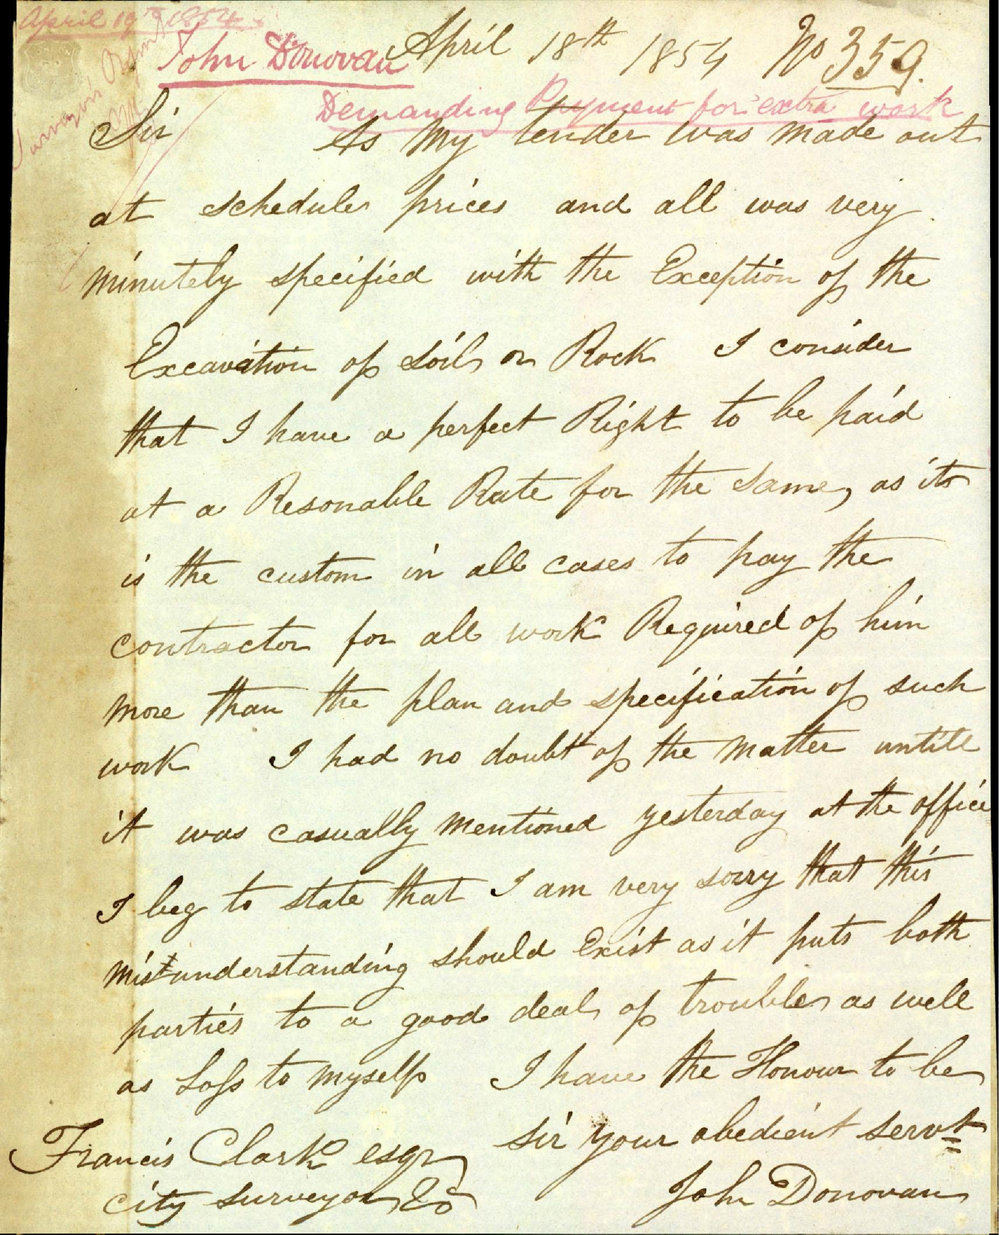 April 19th 1854
John Donovan
April 18th 1854 No 359.
Demanding Payment for extra work
Sir As My tender was made out
at schedule prices and all was very
minutely specified with the Exception of the
Excavation of soil or Rock I consider
that I have a perfect Right to be paid
at a Resonable Rate for the same, as it
is the custom in all cases to pay the
contractor for all work Required of him
more than the plan and specification of such
work I had no doubt of the matter untill
it was casually mentioned yesterday at the office
I beg to state that I am very sorry that this
misunderstanding should Exist as it puts both
parties to a good deal of trouble as well
as Loss to myself I have the Honour to be
sir your obedient servt
Francis Clark esqr
city surveyor &c
John Donovan